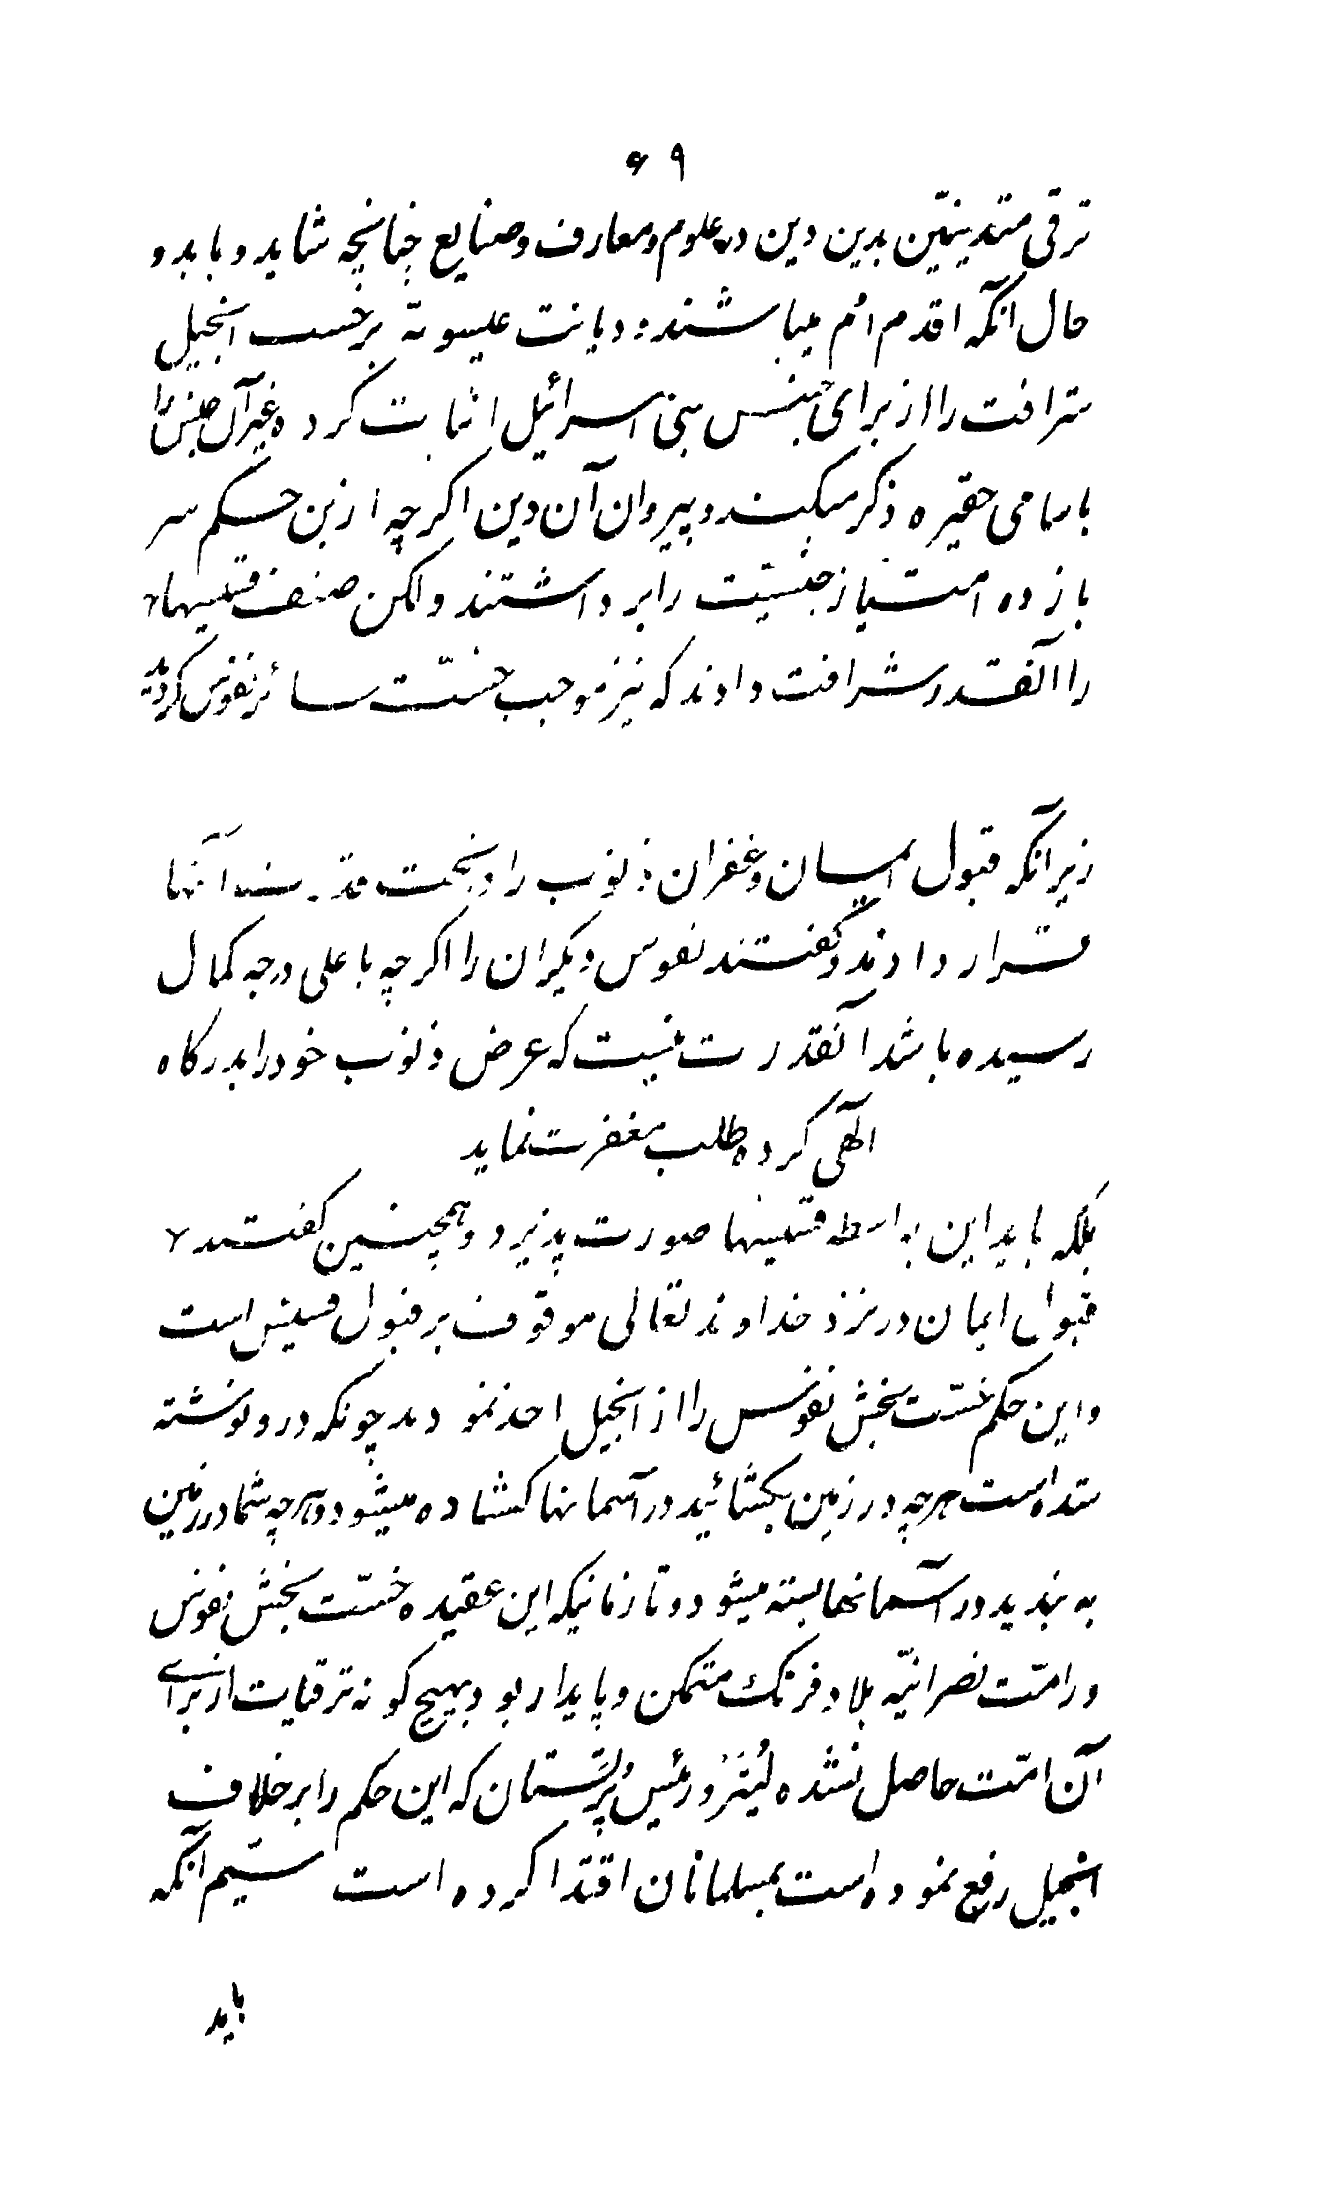 ۶۹
ترقی متدینین بدین دین در علوم و معارف و صنایع چنانچه شاید و باید و
حال آنکه اقدم امم میباشند: دیانت عیسویه برحسب انجیل
شرافت را از برای جنس بنی اسرائیل اثبات کرده غیر آن جنس را
باسامی حقیره ذکر میکند و پیروان آن دین اگر چه ازین حکم سر
باز زده امتیاز جنسیت را برداشتند ولکن صنف قسیسها
را آنقدر شرافت دادند که نیز موجب خسّت سائر نفوس گردید
زیرا آنکه قبول ایمان و غفران ذنوب را در تحت قدرت آنها
قرار دادند و گفتند نفوس دیگران را اگر چه باعلی درجه کمال
رسیده باشد آنقدرت نیست که عرض ذنوب خود را بدرگاه
الٓهی کرده طلب مغفرت نماید
بلکه باید این بواسطه قسیسها صورت پذیرد و همچنین گفتند
قبول ایمان در نزد خداوند تعالی موقوف بر قبول قسیس است
و این حکم خسّت بخش نفوس را از انجیل اخذ نمودند چونکه درو نوشته
شده است هر چه در زمین بکشائید در آسمانها کشاده میشود و هر چه شما در زمین
به بندید در آسمانها بسته میشود و تا زمانیکه این عقیده خسّت بخش نفوس
در امّت نصرانیّه بلاد فرنگ متمکن و پایدار بود بهیچ گونه ترقیات از برای
آن امّت حاصل نشده لُیتَرْ رئیس پُرُتَستان که این حکم را بر خلاف
انجیل رفع نموده است بمسلمانان اقتدا کرده است سیّم آنکه
باید